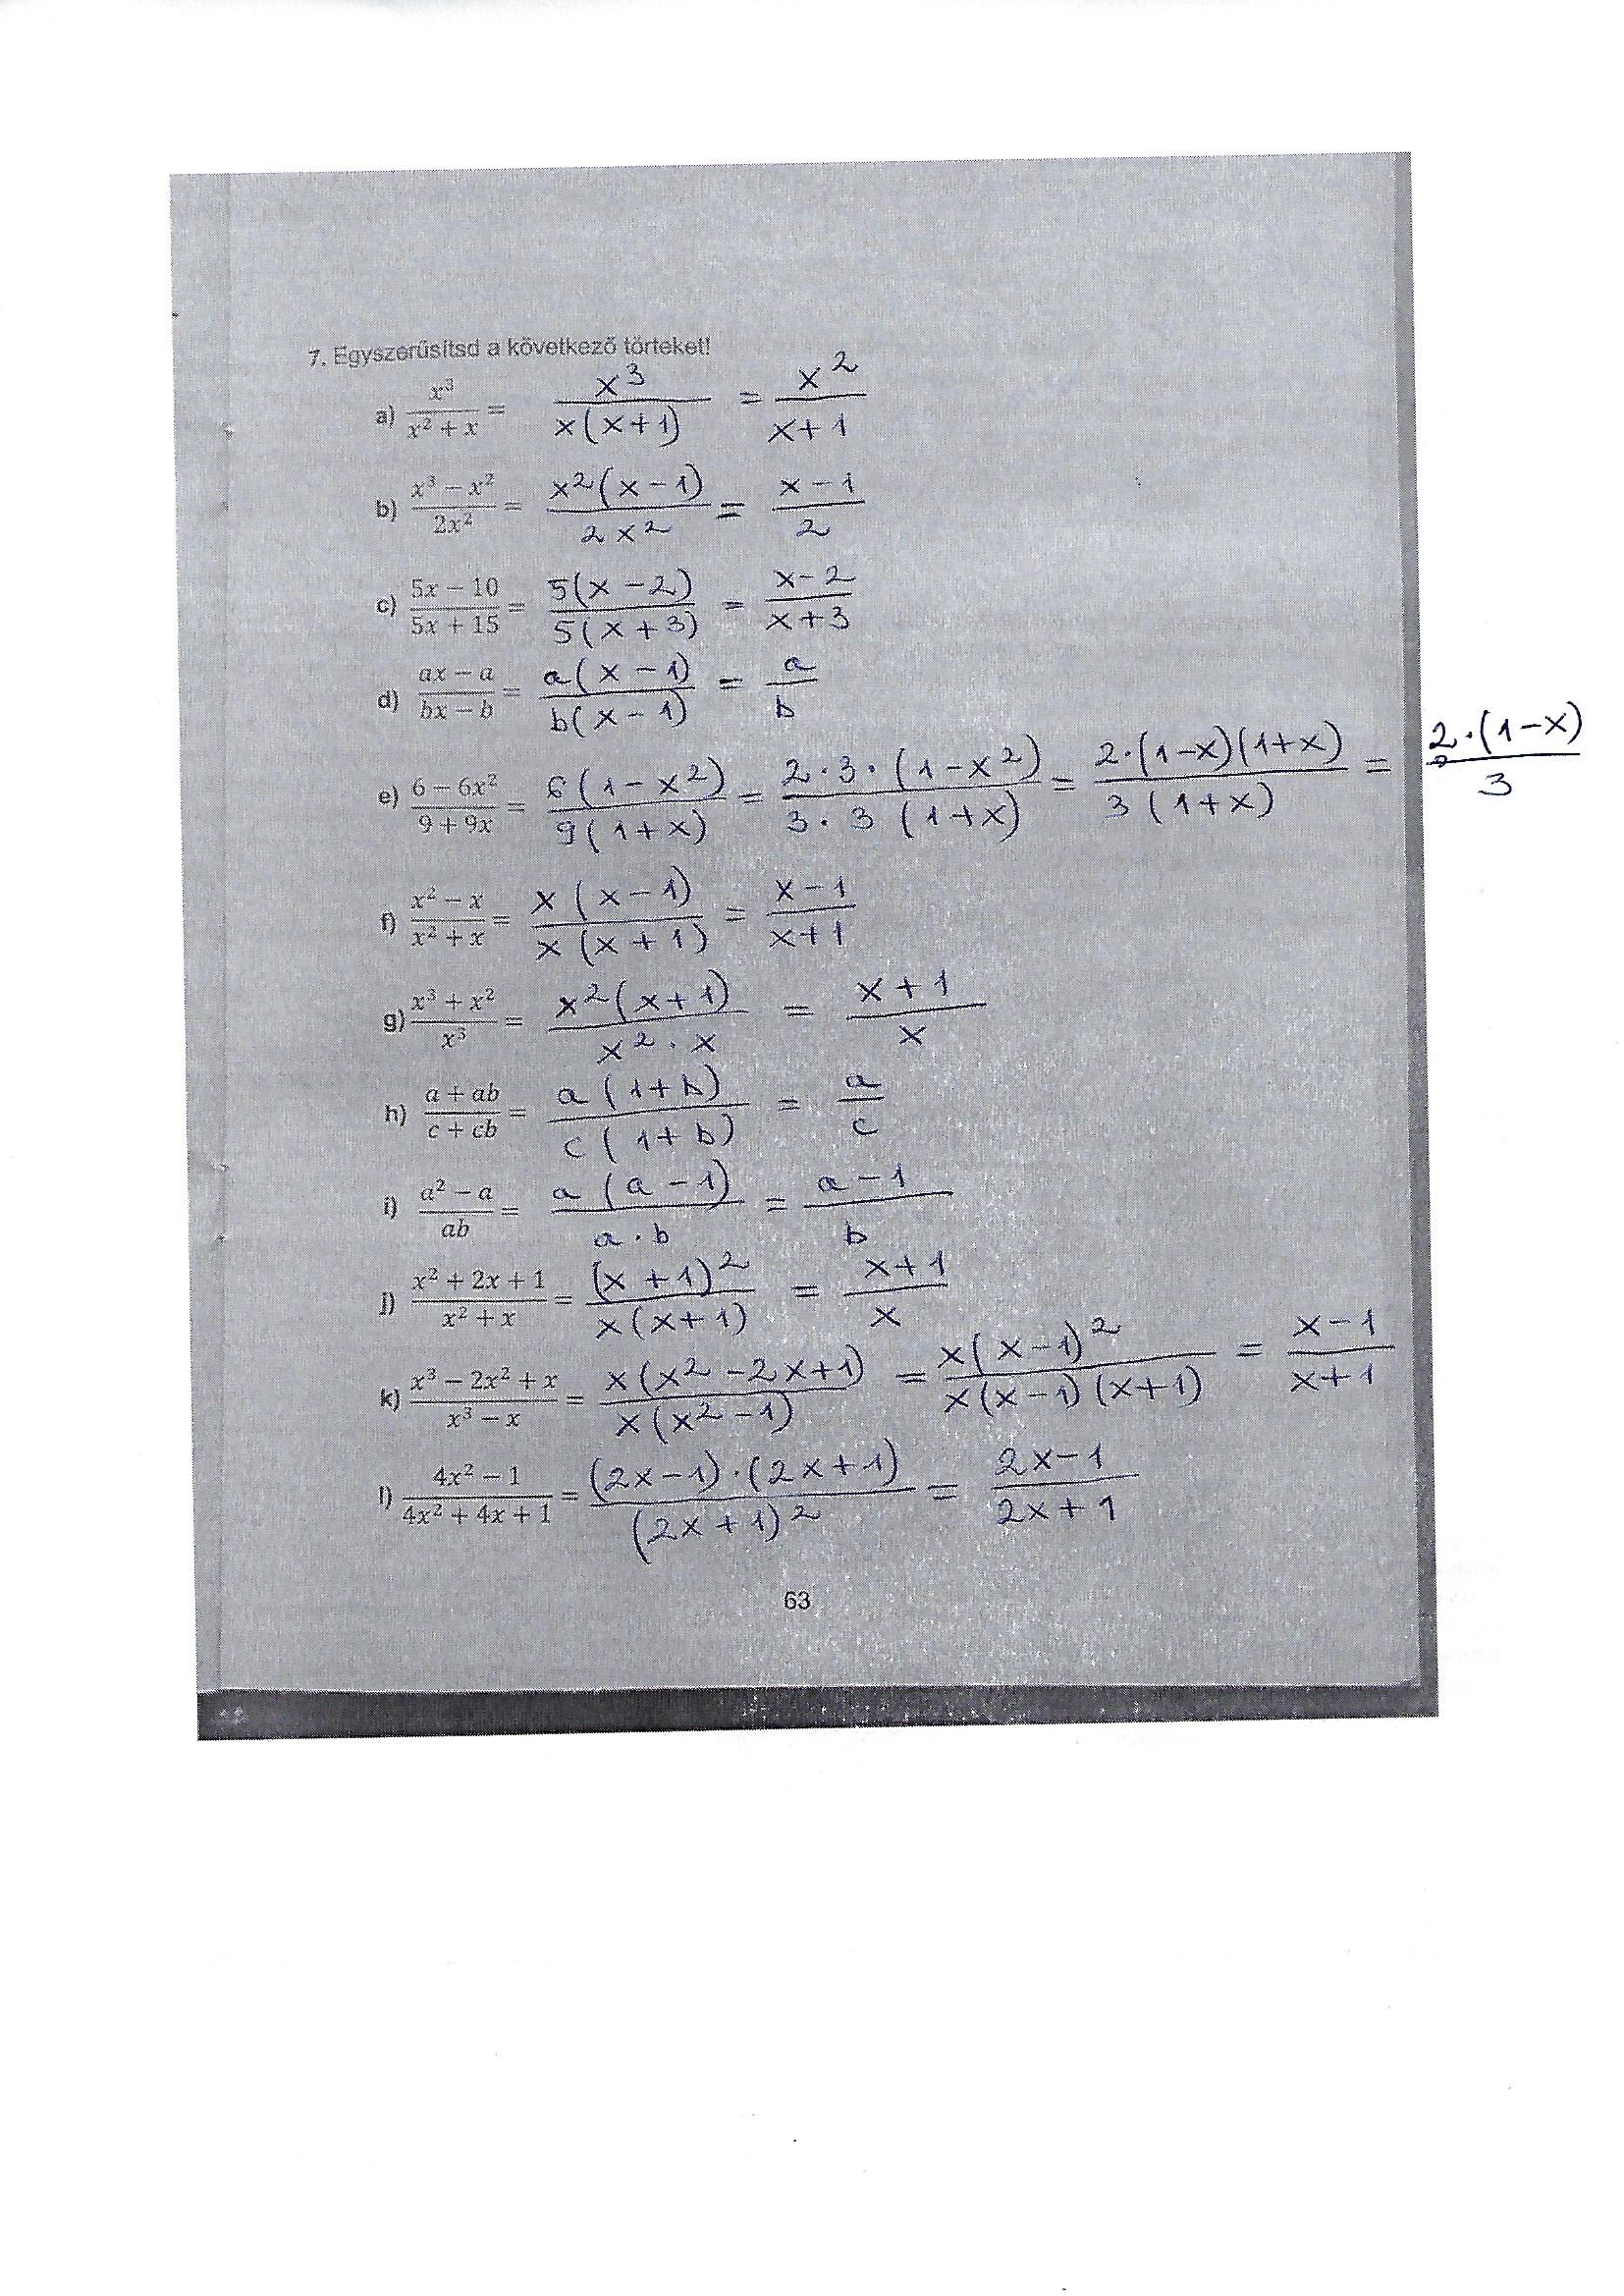 7. Egyszerűsítsd a következő törteket!
a) x³/(x² + x) = x³/(x(x+1)) = x²/(x+1)
b) (x³ − x²)/(2x²) = x²(x−1)/(2x²) = (x−1)/2
c) (5x − 10)/(5x + 15) = 5(x−2)/(5(x+3)) = (x−2)/(x+3)
d) (ax − a)/(bx − b) = a(x−1)/(b(x−1)) = a/b
e) (6 − 6x²)/(9 + 9x) = 6(1−x²)/(9(1+x)) = 2·3·(1−x²)/(3·3(1+x)) = 2·(1−x)(1+x)/(3(1+x)) = 2·(1−x)/3
f) (x² − x)/(x² + x) = x(x−1)/(x(x+1)) = (x−1)/(x+1)
g) (x³ + x²)/x³ = x²(x+1)/(x²·x) = (x+1)/x
h) (a + ab)/(c + cb) = a(1+b)/(c(1+b)) = a/c
i) (a² − a)/(ab) = a(a−1)/(a·b) = (a−1)/b
j) (x² + 2x + 1)/(x² + x) = (x+1)²/(x(x+1)) = (x+1)/x
k) (x³ − 2x² + x)/(x³ − x) = x(x²−2x+1)/(x(x²−1)) = x(x−1)²/(x(x−1)(x+1)) = (x−1)/(x+1)
l) (4x² − 1)/(4x² + 4x + 1) = (2x−1)·(2x+1)/(2x+1)² = (2x−1)/(2x+1)
63